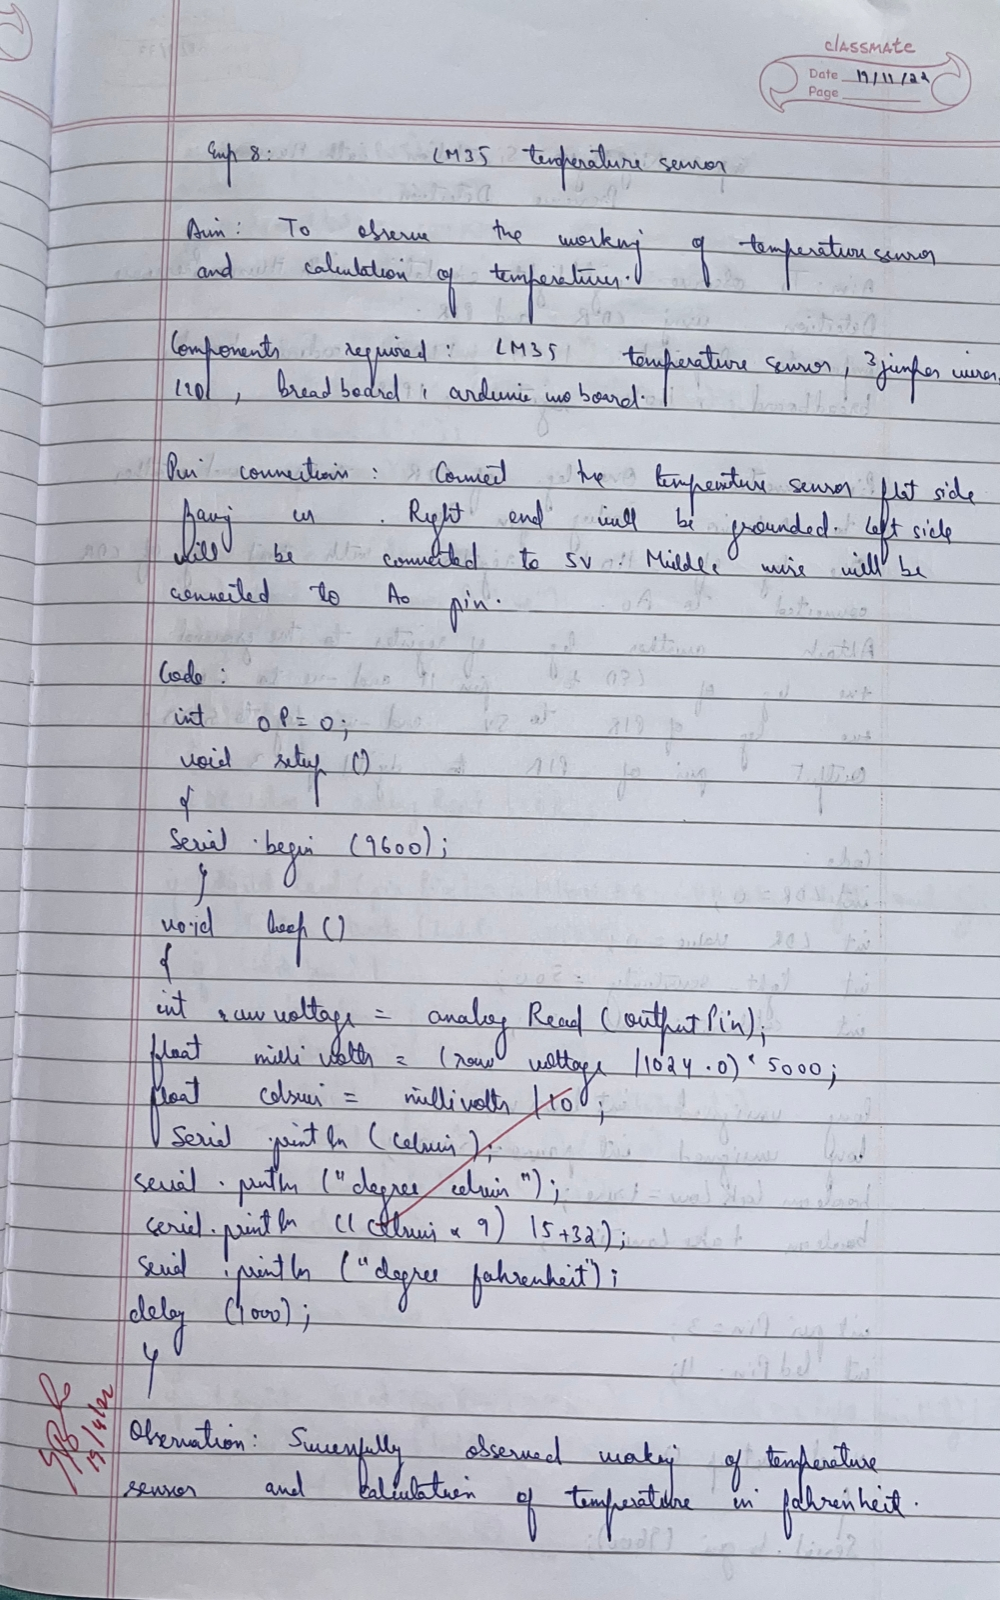 classmate
Date 19/11/22
Page
Exp 8: LM35 temperature sensor
Aim: To observe the working of temperature sensor
and calculation of temperatures.
Components required: LM35 temperature sensor, 3 jumper wires,
breadboard, arduino uno board.
Pin connection: Connect the temperature sensor flat side
facing us. Right end will be grounded. Left side
will be connected to 5V. Middle wire will be
connected to A0 pin.
Code:
int OP = 0;
void setup ()
{
Serial.begin (9600);
}
void loop ()
{
int raw voltage = analog Read (output Pin);
float milli volts = (raw voltage /1024.0) * 5000;
float celsius = millivolts /10;
Serial println (celsius);
serial.println ("degree celsius");
serial.println ((celsius * 9) /5+32);
serial.println ("degree fahrenheit");
delay (1000);
}
19/4/22
Observation: Successfully observed working of temperature
sensor and calculation of temperature in fahrenheit.